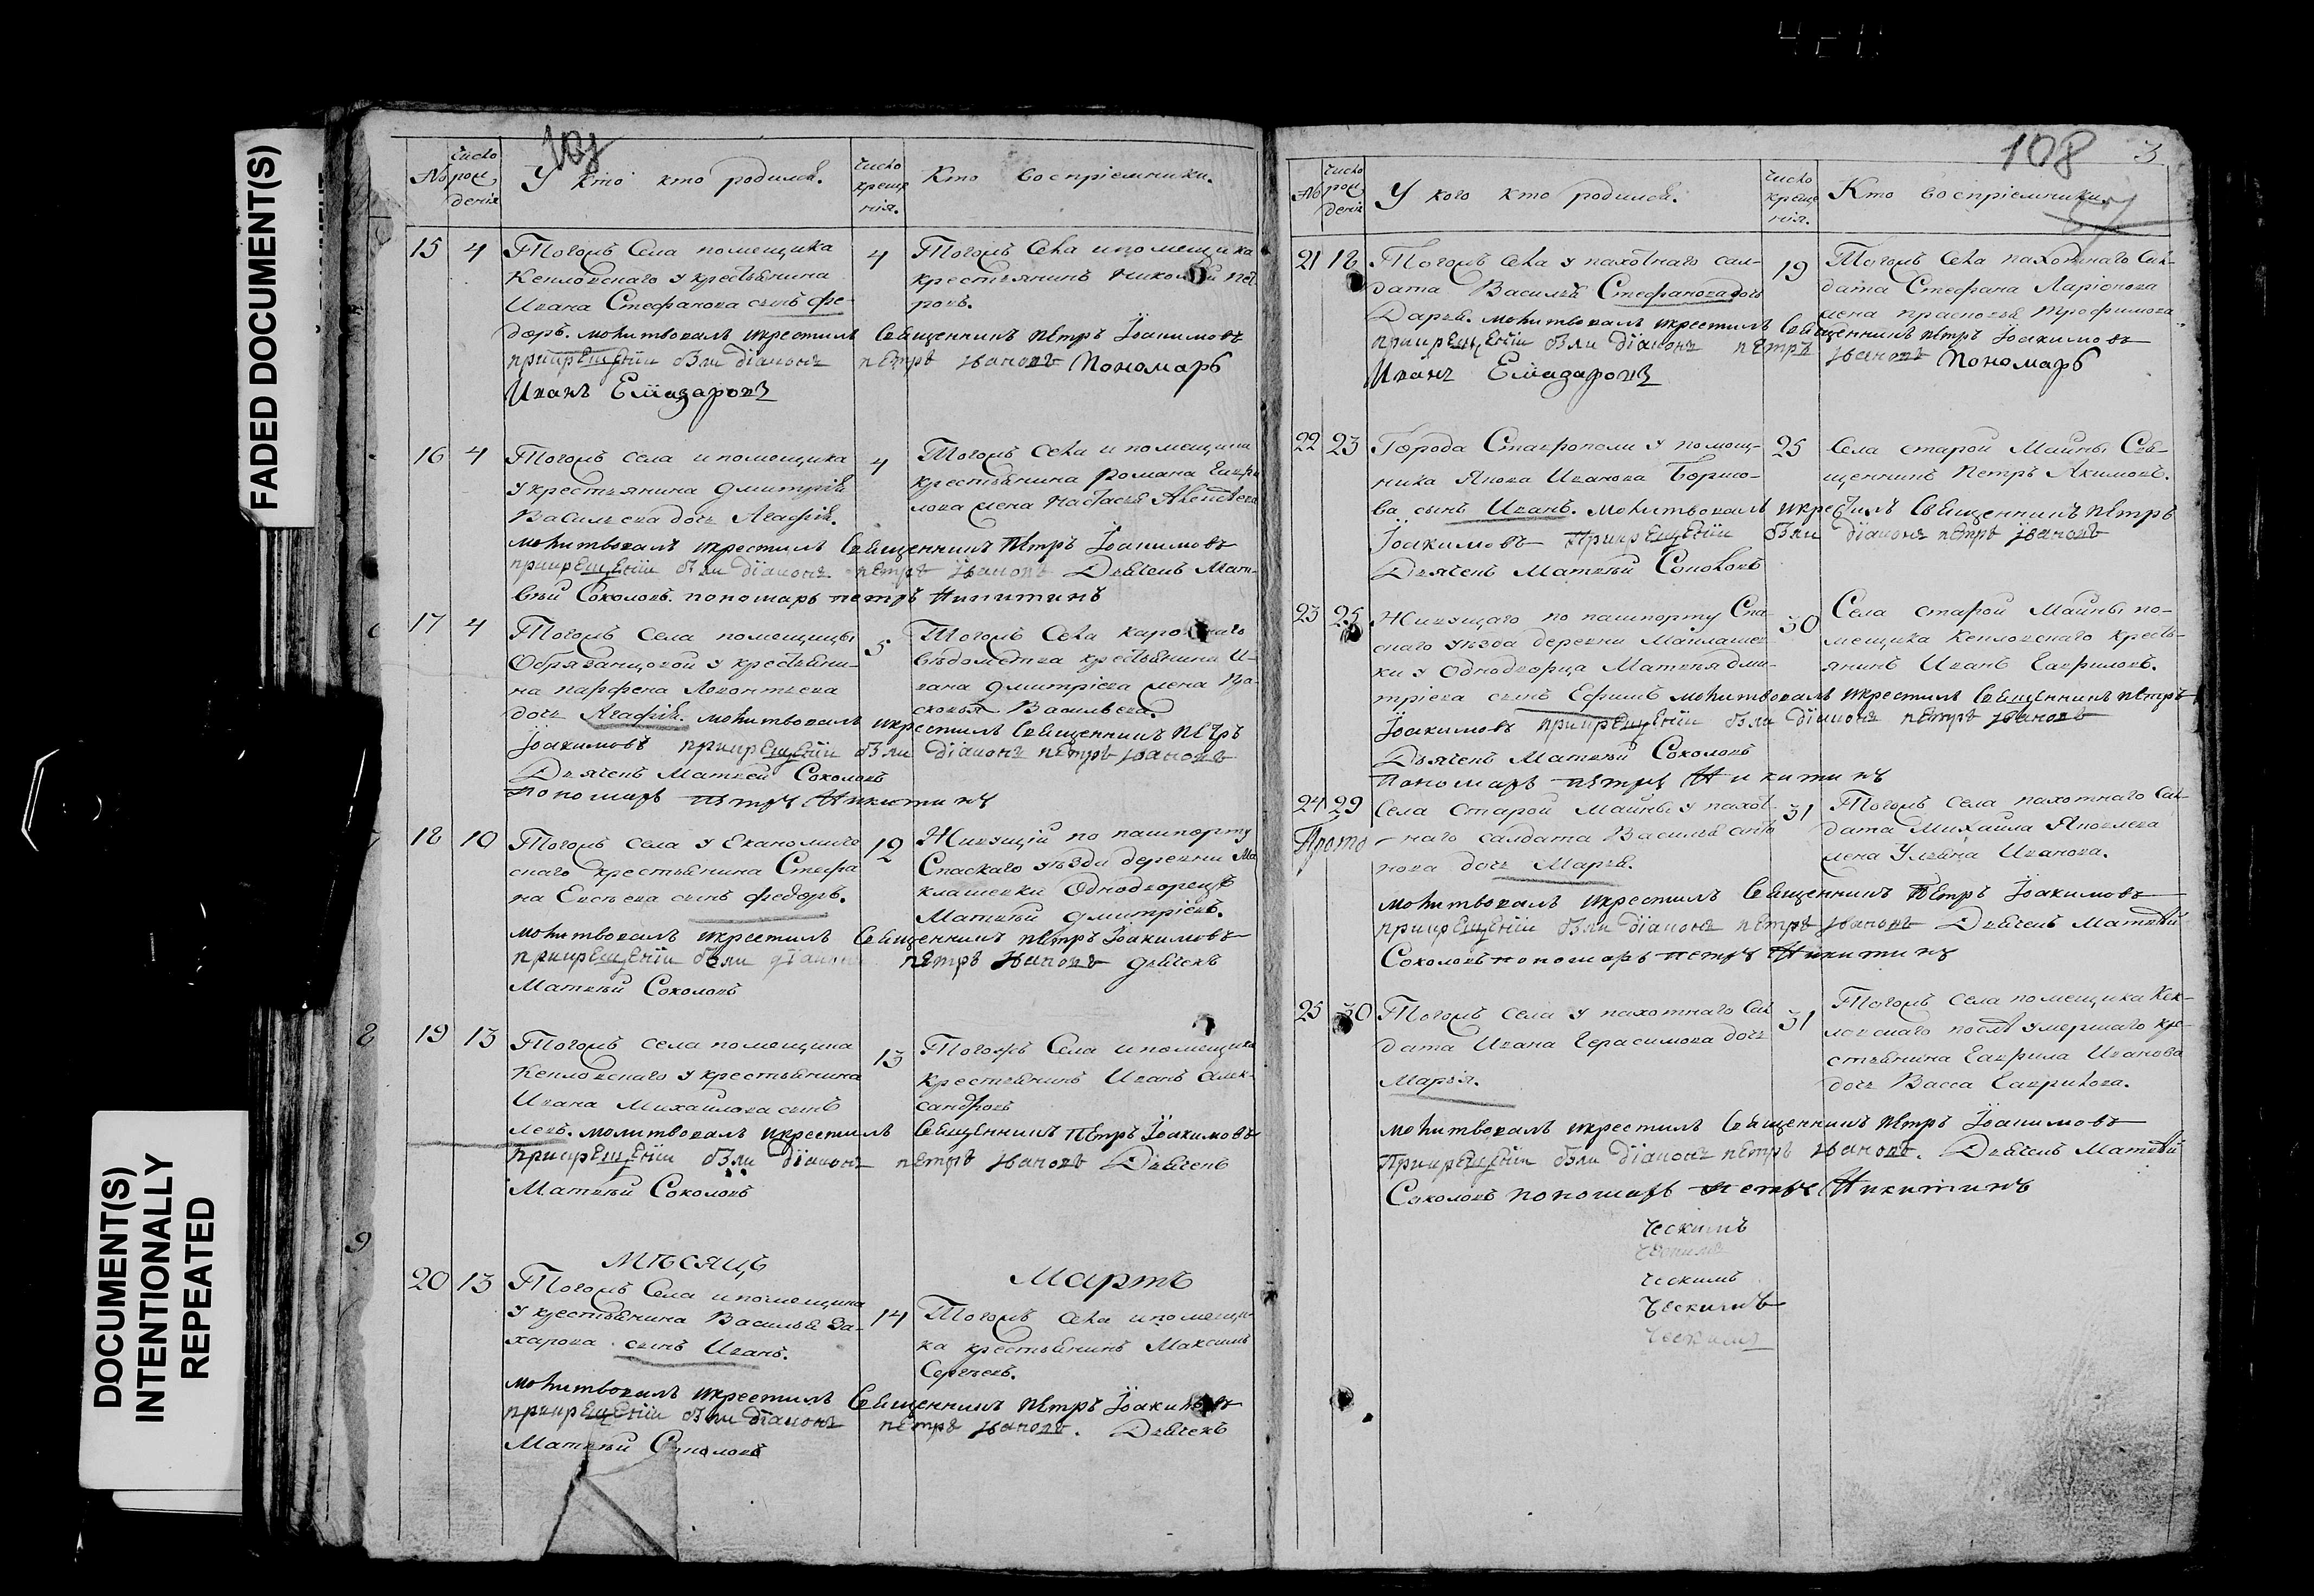 FADED DOCUMENT(S)
DOCUMENT(S)
INTENTIONALLY
REPEATED
№
число рож дения
У кто кто родился.
число креще ния.
Кто восприемники.
15 4 Тогожъ Села помещика
Кепловскаго у крестьянина
Ивана Стефанова сынъ Фе-
доръ. молитвовалъ икрестилъ Священникъ Петръ Іоакимовъ
прикрещеніи были діаконъ петръ Ивановъ Пономарь
Иванъ
4 Тогожъ Села ипомещика
крестьянинъ Николай Пет
ровъ.
16 4 Тогожъ села ипомещика
у крестьянина Дмитрія
Васильева дочь Агафія.
молитвовалъ икрестилъ Священникъ Петръ Іоакимовъ
прикрещеніи были діаконъ петръ Ивановъ Дьячекъ Мат-
вей Соколовъ. пономарь петръ Никитинъ
4 Тогожъ Села ипомещика
крестьянина Романа Гаври
лова жена Настасья
17 4 Тогожъ Села помещицы
Обрезанцовой у крестьяни-
на Парфена Леонтьева
дочь Агафія. молитвовалъ икрестилъ Священникъ Петръ
Іоакимовъ прикрещеніи были діаконъ петръ Ивановъ
Дьячекъ Матвей Соколовъ
пономарь петръ Никитинъ
5 Тогожъ Села
ведомства крестьянина И-
вана Дмитріева жена Па-
сковья Васильева.
18 10 Тогожъ села у Економиче
скаго крестьянина Стефа
на Евсеева сынъ Федоръ.
молитвовалъ икрестилъ Священникъ петръ Іоакимовъ
прикрещеніи были діаконъ петръ Ивановъ дьячекъ
Матвей Соколовъ
12 Живущій по пашпорту
Спаскаго уезда деревни Ма
клашевки Однодворецъ
Матвей Дмитріевъ.
19 13 Тогожъ села помещика
Кепловскаго у крестьянина
Ивана Михайлова сынъ
Левъ. молитвовалъ икрестилъ Священникъ Петръ Іоакимовъ
прикрещеніи были діаконъ петръ Ивановъ Дьячекъ
Матвей Соколовъ
13 Тогожъ Села ипомещика
крестьянинъ Иванъ Алек-
сандровъ
8
9
Месяцъ Мартъ
20 13 Тогожъ Села ипомещика
у крестьянина Василья За-
харова сынъ Иванъ.
молитвовалъ икрестилъ Священникъ Петръ Іоакимовъ
прикрещеніи были діаконъ петръ Ивановъ. Дьячекъ
Матвей Соколовъ
14 Тогожъ села ипомещи-
ка крестьянинъ Максимъ
Сергеевъ.
108 3
№
число рож дения
У кого кто родился.
число креще ния.
Кто восприемники.
21 18 Тогожъ села у пахотнаго сал-
дата Василья Стефанова дочь
Дарья. молитвовалъ икрестилъ Священникъ Петръ Іоакимовъ
прикрещеніи были діаконъ петръ Ивановъ Пономарь
Иванъ
19 Тогожъ Села пахотнаго сал-
дата Стефана Ларіонова
жена Прасковья Трофимова.
22 23 Города Ставрополя у помощ-
ника Якова Иванова Борисо-
ва сынъ Иванъ. молитвовалъ икрестилъ Священникъ Петръ
Іоакимовъ прикрещеніи были діаконъ петръ Ивановъ
Дьячекъ Матвей Соколовъ
25 Села старой Майны Свя-
щенникъ Петръ Акимовъ.
23 25 Живущаго по пашпорту Спа
скаго уезда деревни Маклашев
ки у Однодворца Матвея Дми-
тріева сынъ Ефимъ молитвовалъ икрестилъ Священникъ Петръ
Іоакимовъ прикрещеніи были діаконъ петръ Ивановъ
Дьячекъ Матвей Соколовъ
пономарь петръ Никитинъ
30 Села старой Майны по-
мещика Кепловскаго кресть-
янинъ Иванъ Гавриловъ.
24 29 Села Старой Майны у пахот-
наго салдата Василья Анто
нова дочь Марья.
молитвовалъ икрестилъ Священникъ Петръ Іоакимовъ
прикрещеніи были діаконъ петръ Ивановъ Дьячекъ Матвей
Соколовъ пономарь петръ Никитинъ
31 Тогожъ Села пахотнаго сал-
дата Михаила Яковлева
жена Ульяна Иванова.
Прото
25 30 Тогожъ Села у пахотнаго сал
дата Ивана Герасимова дочь
Марья.
молитвовалъ икрестилъ Священникъ Петръ Іоакимовъ
Прикрещеніи были діаконъ петръ Ивановъ. Дьячекъ Матвей
Соколовъ пономарь петръ Никитинъ
31 Тогожъ села помещика Кек-
ловскаго после умершаго кре-
стьянина Гаврила Иванова
дочь Васса Гаврилова.
ческимъ
ческимъ
ческимъ
ческимъ
ческимъ